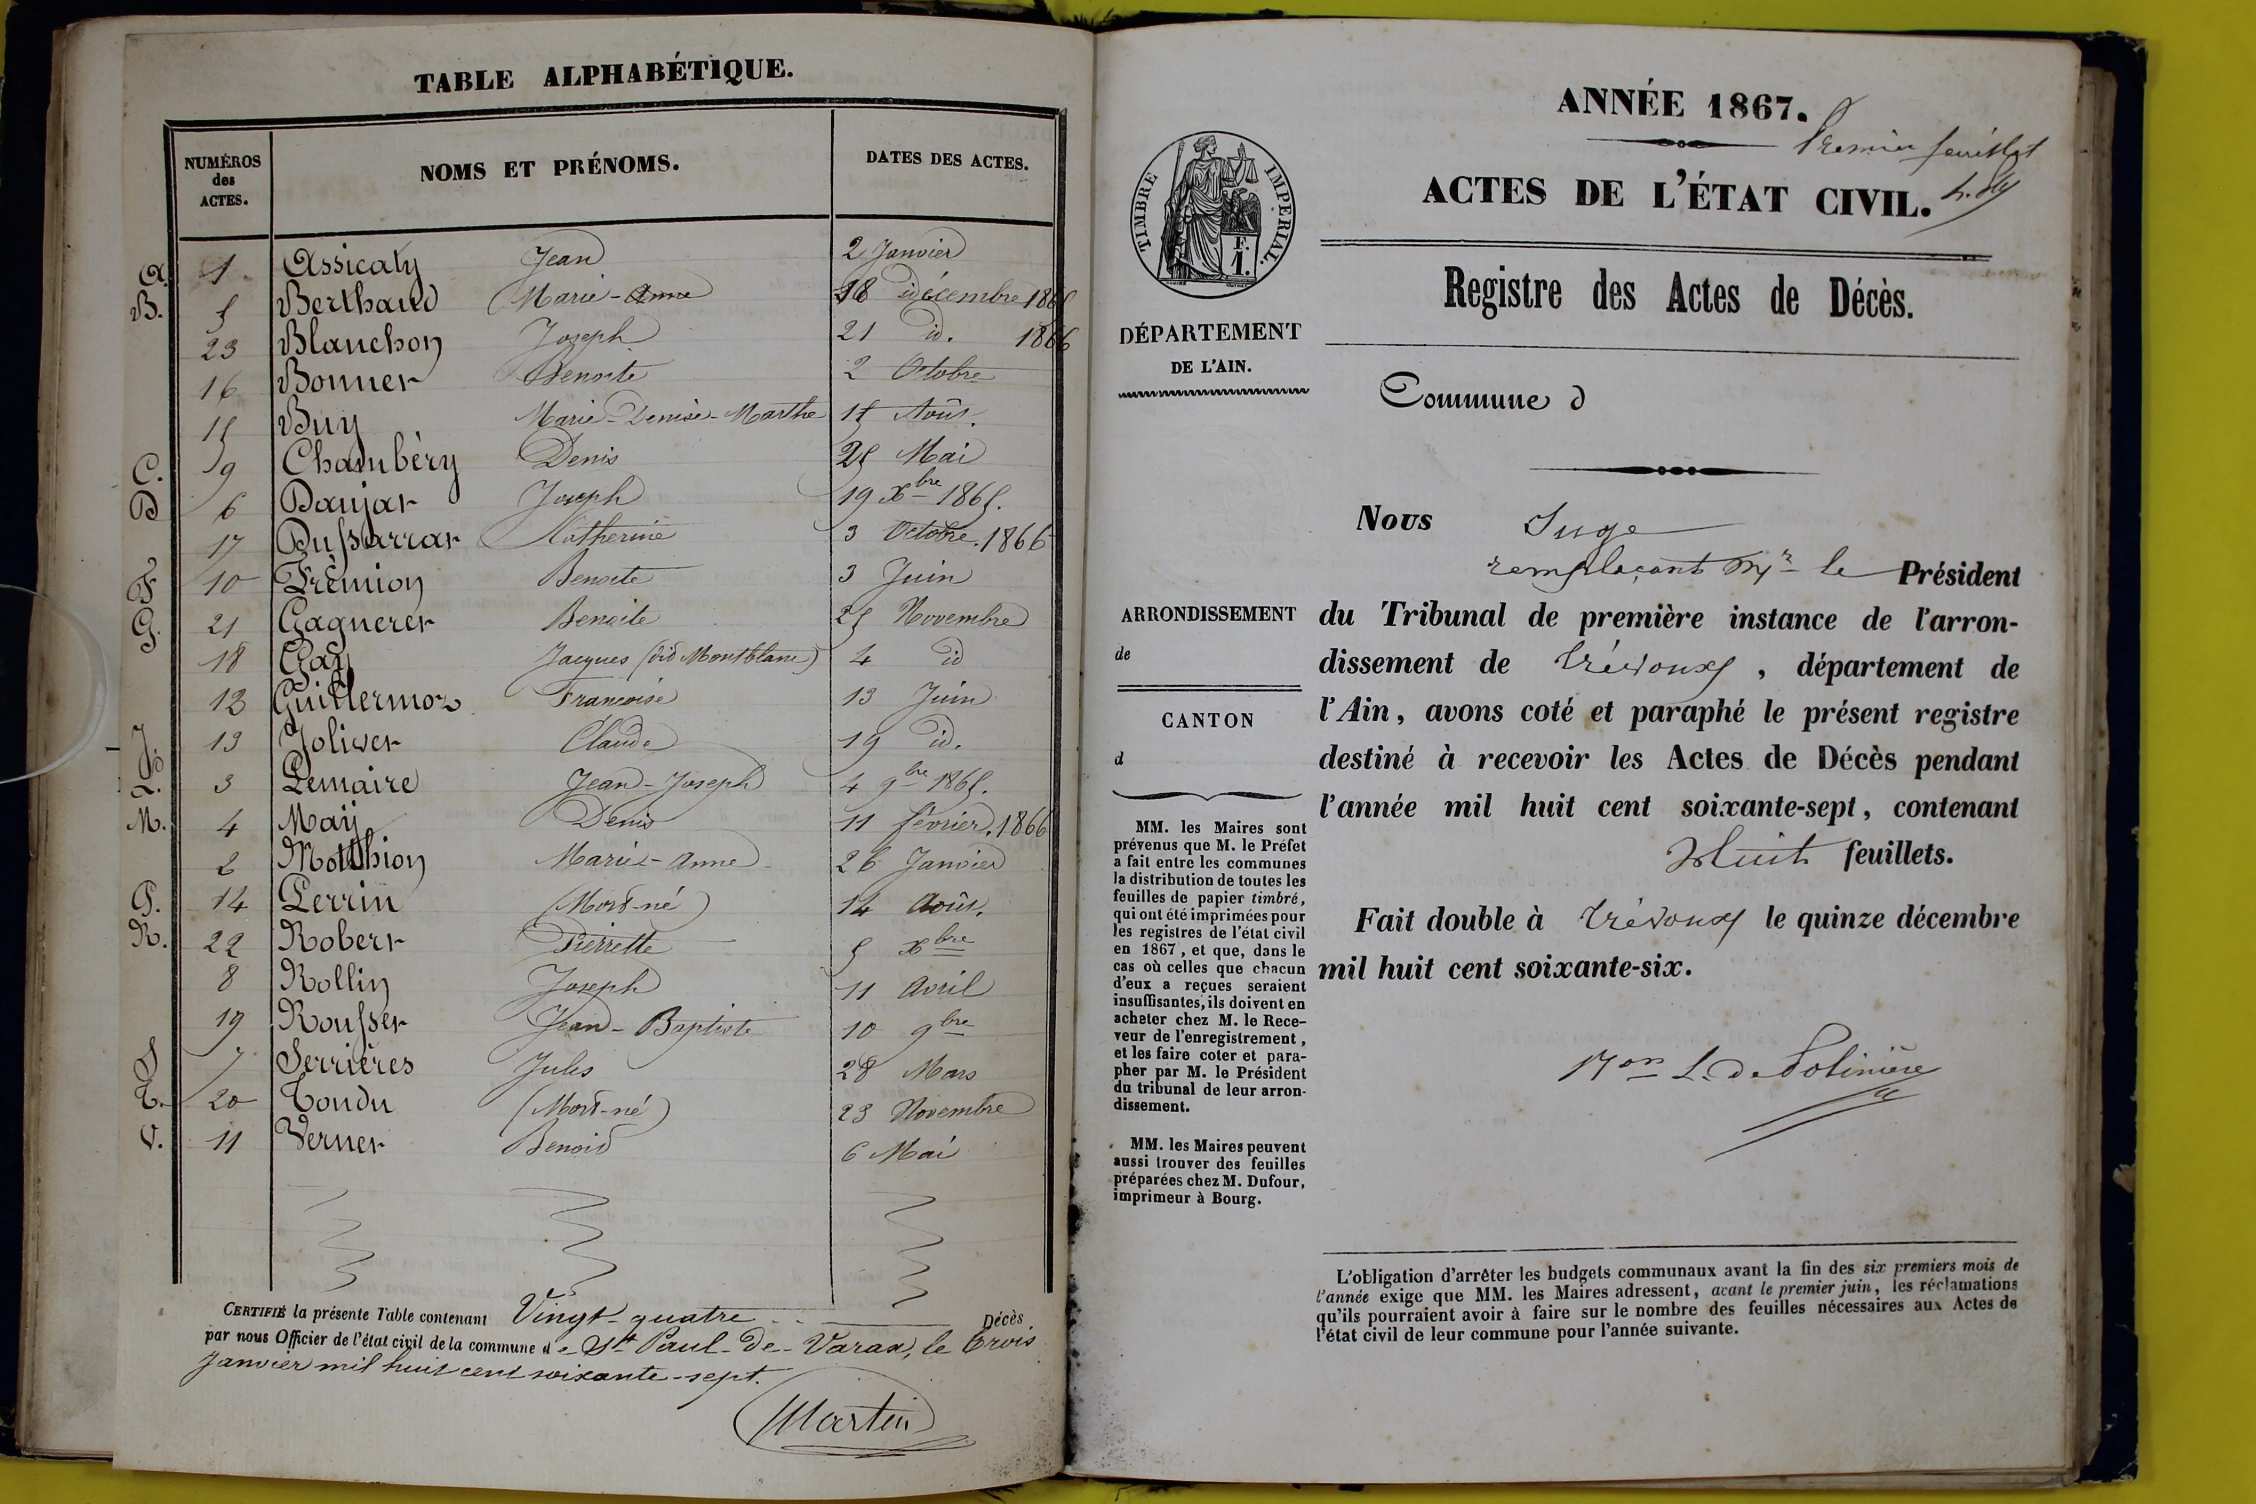 TABLE ALPHABÉTIQUE.
NUMÉROS des ACTES. NOMS ET PRÉNOMS. DATES DES ACTES.
A. 1 Assicaty Jean 2 Janvier
B. 5 Berthaud Marie-Anne 18 décembre 1865
23 Blanchon Joseph 21 id. 1866
16 Bonner Benoite 2 Octobre
15 Buy Marie-Denise-Marthe 15 Août.
C. 9 Chambéry Denis 25 Mai
D 6 Danjar Joseph 19 Xbre 1865.
17 Dussarrar Catherine 3 Octobre. 1866
F 10 Frémion Benoite 3 Juin
G. 21 Gagnerer Benoite 25 Novembre
18 Gay Jacques (dit Montblanc) 4 id
12 Guillermoz Francoise 13 Juin
J. 13 Joliver Claude 19 id.
L. 3 Lemaire Jean-Joseph 4 9bre 1865.
M. 4 Maÿ Denis 11 février. 1866
2 Motthion Marie-Anne 26 Janvier
P. 14 Perrin (Mort-né) 14 Août.
R. 22 Rober Pierrette 5 Xbre
8 Rollin Joseph 11 Avril
19 Rousser Jean-Baptiste 10 9bre
S 7 Serrières Jules 28 Mars
T. 20 Tondu (Mort-né) 23 Novembre
V. 11 Verner Benoit 6 Mai
CERTIFIÉ la présente Table contenant Vingt-quatre Décès
par nous Officier de l'état civil de la commune de St Paul-De-Varax, le trois
Janvier mil huit cent soixante-sept.
Martin
ANNÉE 1867.
Premier feuillet
ACTES DE L'ÉTAT CIVIL.
TIMBRE IMPERIAL.
F.
1.
Registre des Actes de Décès.
DÉPARTEMENT
DE L'AIN.
Commune d
Nous Juge
remplaçant Mr le Président
ARRONDISSEMENT
de
CANTON
d
du Tribunal de première instance de l'arron-
dissement de Trévoux, département de
l'Ain, avons coté et paraphé le présent registre
destiné à recevoir les Actes de Décès pendant
l'année mil huit cent soixante-sept, contenant
Huit feuillets.
Fait double à Trévoux le quinze décembre
mil huit cent soixante-six.
MM. les Maires sont
prévenus que M. le Préfet
a fait entre les communes
la distribution de toutes les
feuilles de papier timbré,
qui ont été imprimées pour
les registres de l'état civil
en 1867, et que, dans le
cas où celles que chacun
d'eux a reçues seraient
insuffisantes, ils doivent en
acheter chez M. le Rece-
veur de l'enregistrement,
et les faire coter et para-
pher par M. le Président
du tribunal de leur arron-
dissement.
MM. les Maires peuvent
aussi trouver des feuilles
préparées chez M. Dufour,
imprimeur à Bourg.
L. de Polinière
L'obligation d'arrêter les budgets communaux avant la fin des six premiers mois de
l'année exige que MM. les Maires adressent, avant le premier juin, les réclamations
qu'ils pourraient avoir à faire sur le nombre des feuilles nécessaires aux Actes de
l'état civil de leur commune pour l'année suivante.